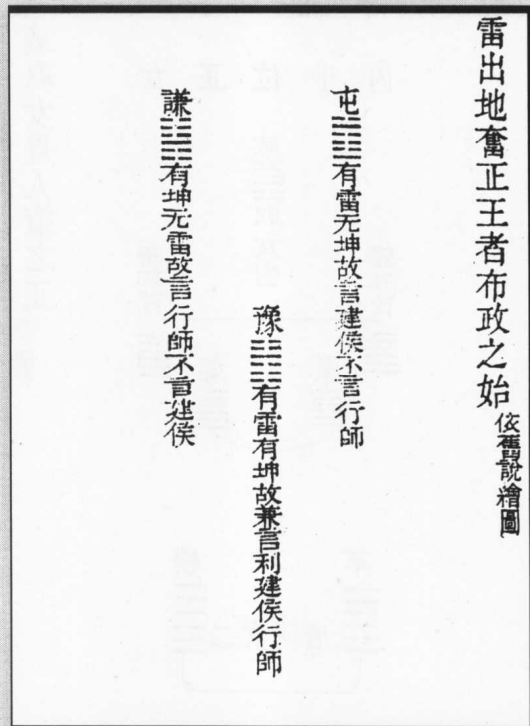 雷出地奮正王者布政之始
依舊說繪圖
屯䷂有雷无坤故言建侯不言行師
豫䷏有雷有坤故兼言利建侯行師
謙䷎有坤无雷故言行師不言建侯